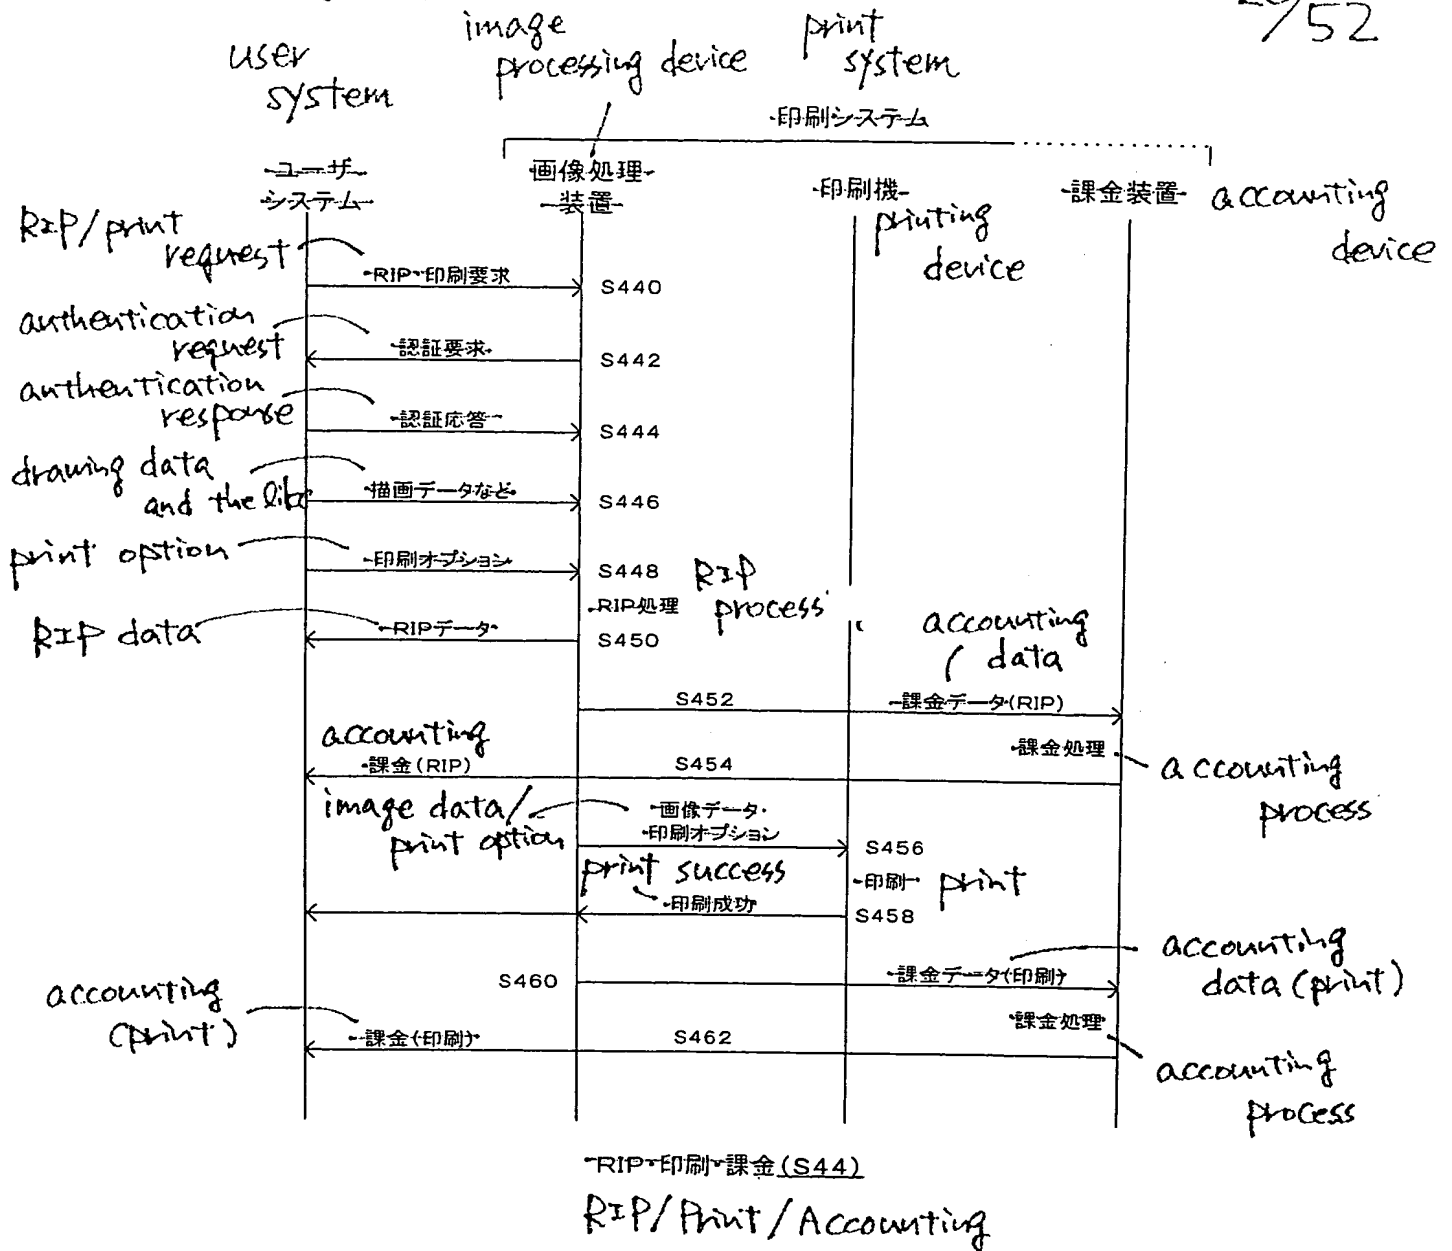 /52
image
processing device
print
system
user
system
印刷システム
ユーザ
システム
画像処理
装置
印刷機
課金装置
accounting
device
printing
device
RIP/print
request
RIP・印刷要求
S440
authentication
request
認証要求
S442
authentication
response
認証応答
S444
drawing data
and the like
描画データなど
S446
print option
印刷オプション
S448
RIP
process
RIP処理
RIP data
RIPデータ
S450
accounting
data
S452
課金データ(RIP)
accounting
課金(RIP)
S454
課金処理
accounting
process
image data/
print option
画像データ・
印刷オプション
S456
print success
印刷
print
印刷成功
S458
S460
課金データ(印刷)
accounting
data (print)
accounting
(print)
課金(印刷)
S462
課金処理
accounting
process
RIP・印刷・課金(S44)
RIP/Print/Accounting